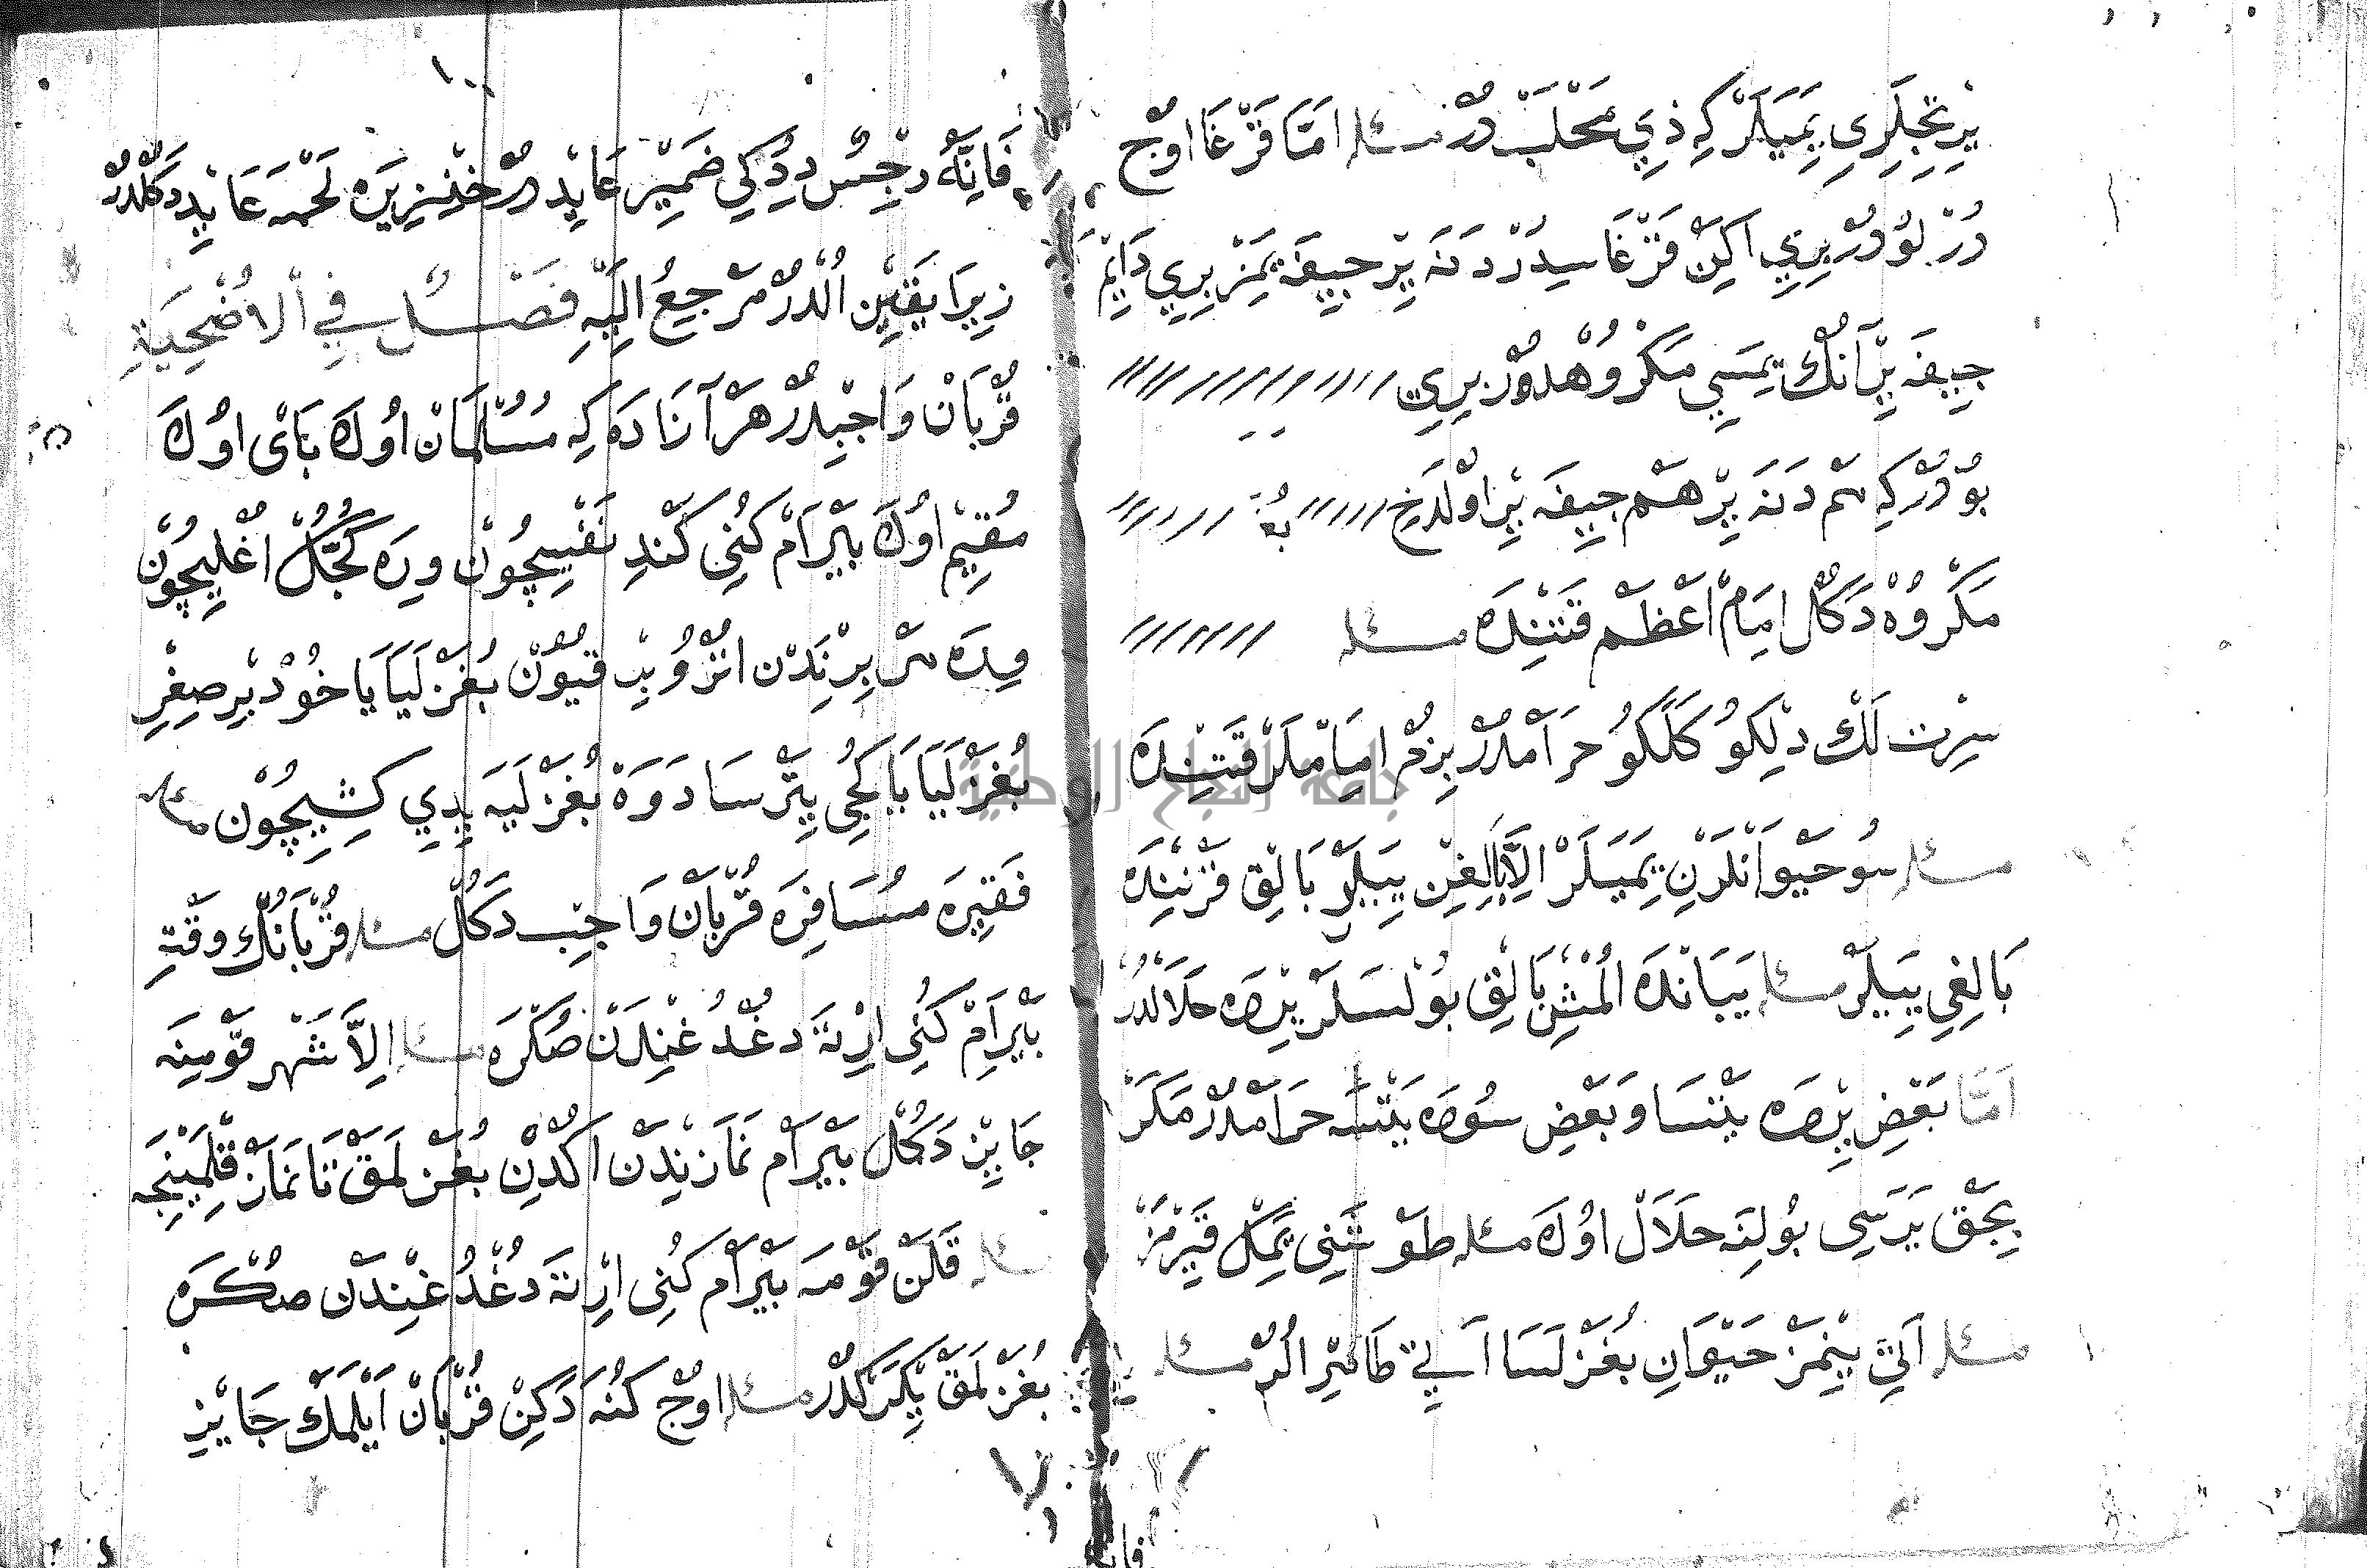 يِرْتِجِلَرِي يِمَيَلَرْ كِه ذِي مَحْلَبْ دُرْ مسئله امَّا قَرْغَا اوُجْ
دُرْ لوُ دُرْ بِرِي اَكِنْ قَرْغَا سِدُرْ دَنَه يِرْ جِيفَه يِمَزْ بِرِي دَايِمْ
جِيفَه يِرْ اَنُكْ يِمَسِي مَكْرُوْهْدُوْرْ بِرِي
بوُدُرْ كِه هَمْ دَنَه يِرْ هَمْ جِيفَه يِرْ اوُلْدَخِ بُو
مَكْرُوْهْ دَكُلْ اِمَامْ اَعْظَمْ قَتِنْدَه مسئله
سِرْتْلَكْ دِلْكوُ كَلَكوُ حَرَامْدُرْ بِزُمْ اِمَامْلَرْ قَتِنْدَه
جامعة النجاح الوطنية
مسئله سُو حَيْوَانْلَرْنِ يِمَيَلَرْ اِلاَّ بَالِغِنْ يِيَلَرْ بَالِقْ قَرْنِنْدَه
بَالِغِي يِيَلَرْ مسئله يَبَانْدَه اُلْمُشْ بَالِقْ بُوْلْسَلَرْ يِرْسَه حَلَالْدُرْ
اَمَّا بَعْضِ يِرْسَه يَتْسَا وَبَعْضِ سُوسَه يَتْسَه حَرَامْدُرْ مَكَرْ
يِجَقْ يَرَسِي بُولِنَه حَلَالْ اوُلَه مسئله طَوْشَنِي يِمَكْ قَيِرْمَزْ
مسئله اَتِي يِنْمَزْ حَيْوَانِ بُغَزْلَسَا اَتِي طَاهِرْ اُلُرْ مسئله
فانه
١٠٠
فَاِنَّهُ رِجْسٌ دِدُكِي ضَمِيْرْ عَايِدْ دُرْ خِنْزِيرَه لَحْمَه عَايِدْ دَكُلْدُرْ
زِيرَا يَقِيْن اُلُدُرْ مَرْجِعُ اِلَيْهِ فَصْلٌ فِي الْاُضْحِيَةِ
قُرْبَانْ وَاجِبْدُرْ هَرْ آزَادَه كِه مُسُلْمَانْ اوُلَه بَاىْ اوُلَه
مُقِيْمْ اوُلَه بَيْرَامْ كُنِى كَنْدِ نَفْسِيچُونْ وِرَه كُچُكْ اُغْلِيچُونْ
وِرَه هَرْ بِرْنِدَنْ اُتْرُو بِرْ قُيُونْ بُغَزْلَيَا يَا خُوْدْ بِرْ صِغِرْ
بُغَزْلَيَا يَا كَجِى يِتَرْ سَا دَوَه بُغَزْلَيَه يِدِي كِشِيچُونْ مسئله
فَقِيرَه مُسَافِرَه قُرْبَانْ وَاجِبْ دَكُلْ مسئله قُرْبَانُكْ وَقْتِ
بَيْرَامْ كُنِى اِرْتَه دُغْدُغِنْدَنْ صُكْرَه مسئله اِلاَّ شَهْر قَوْمِنَه
جَايِزْ دَكُلْ بَيْرَامْ نَمَازِنْدَنْ اُكْدِنْ بُغَزْلَمَقْ تَا نَمَازْ قِلْمَيِنْجَه
مسئله قَلَنْ قَوْمَه بَيْرَامْ كُنِى اِرْتَه دُغْدُغِنْدَنْ صُكْرَه
بُغَزْلَمَقْ كَرَكْدُرْ مسئله اوُچْ كُنَه دَكِنْ قُرْبَانْ اَيْلَمَكْ جَايِزْ